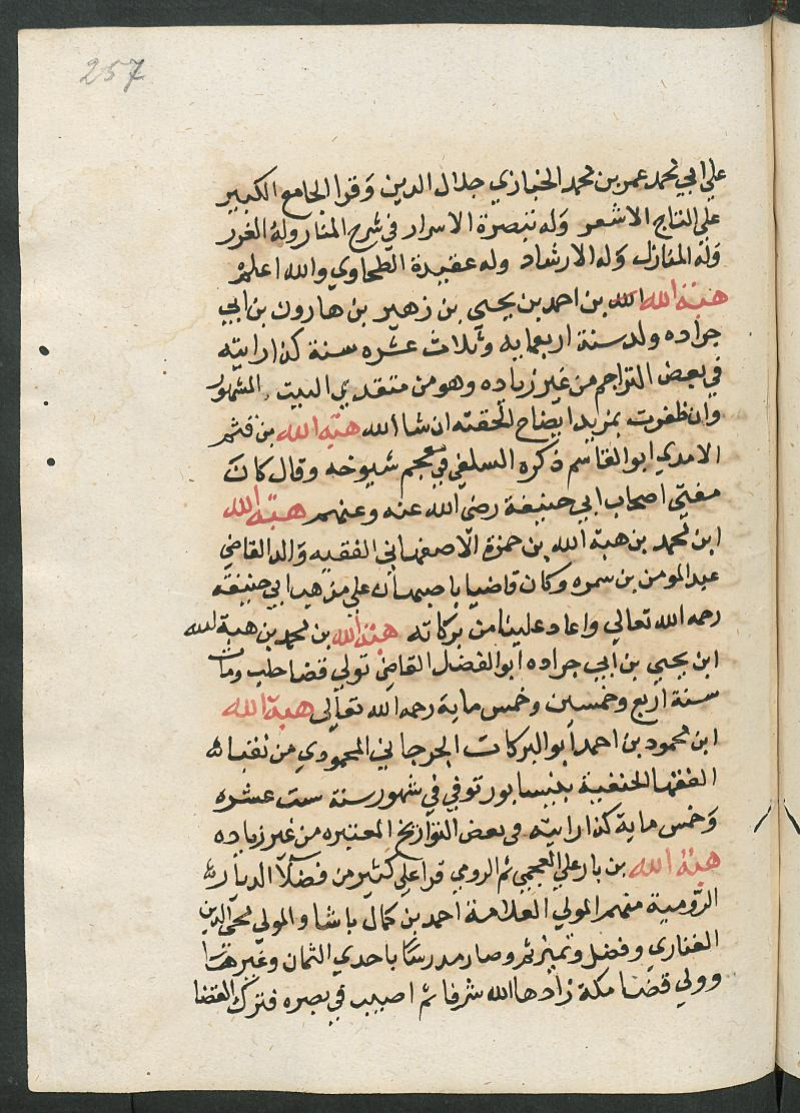 257
علي ابي محمد عمر بن محمد الخبازي جلال الدين وقرا الجامع الكبير
علي التاج الاشعر وله تبصرة الاسرار في شرح المنار وله الغرر
وله المنازل وله الارشاد وله عقيدة الطحاوي والله اعلم
هبة الله الله بن احمد بن يحيي بن زهير بن هارون بن ابي
جراده ولد سنة اربعمايه وثلاث عشره سنة كذا رايته
في بعض التراجم من غير زياده وهو من متقدمي البيت المشهور
وان ظفرت بمزيد ايضاح الحقته ان شا الله هبة الله بن قثم
الامدي ابو القاسم ذكره السلفي في معجم شيوخه وقال كان
مفتي اصحاب ابي حنيفة رضي الله عنه وعنهم هبة الله
ابن محمد بن هبة الله بن حمزة الاصفهاني الفقيه والد القاضي
عبد المومن بن سمره وكان قاضيا باصبهان علي مذهب ابي حنيفة
رحمه الله تعالي واعاد علينا من بركاته هبة الله بن محمد بن هبة الله
ابن يحيي بن ابي جراده ابو الفضل القاضي تولي قضا حلب ومات
سنة اربع وخمسين وخمس ماية رحمه الله تعالى هبة الله
ابن محمود بن احمد ابو البركات الجرجاني المحمودي من نقبا
الفقها الحنفية بنيسابور توفي في شهور سنة ست عشره
وخمس ماية كذا رايته في بعض التواريخ المعتبره من غير زياده
هبة الله بن بار علي العجمي ثم الرومي قرا علي كثير من فضلا الديار
الرومية منهم المولي العلامة احمد بن كمال باشا والمولي محيي الدين
الفناري وفضل وتميز ثم وصار مدرسا باحدي الثمان وغيرها
وولي قضا مكة زادها الله شرفا ثم اصيب في بصره فترك القضا